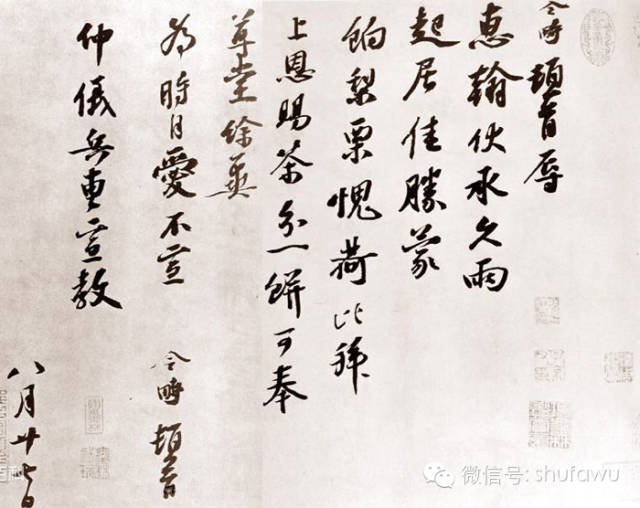 令時頓首辱
惠翰伏承久雨
起居佳勝蒙
餉梨栗愧荷比拜
上恩賜茶分一餅可奉
尊堂餘冀
為時自愛不宣
令時頓首
仲儀兵曹宣教
八月廿七日
微信号: shufawu